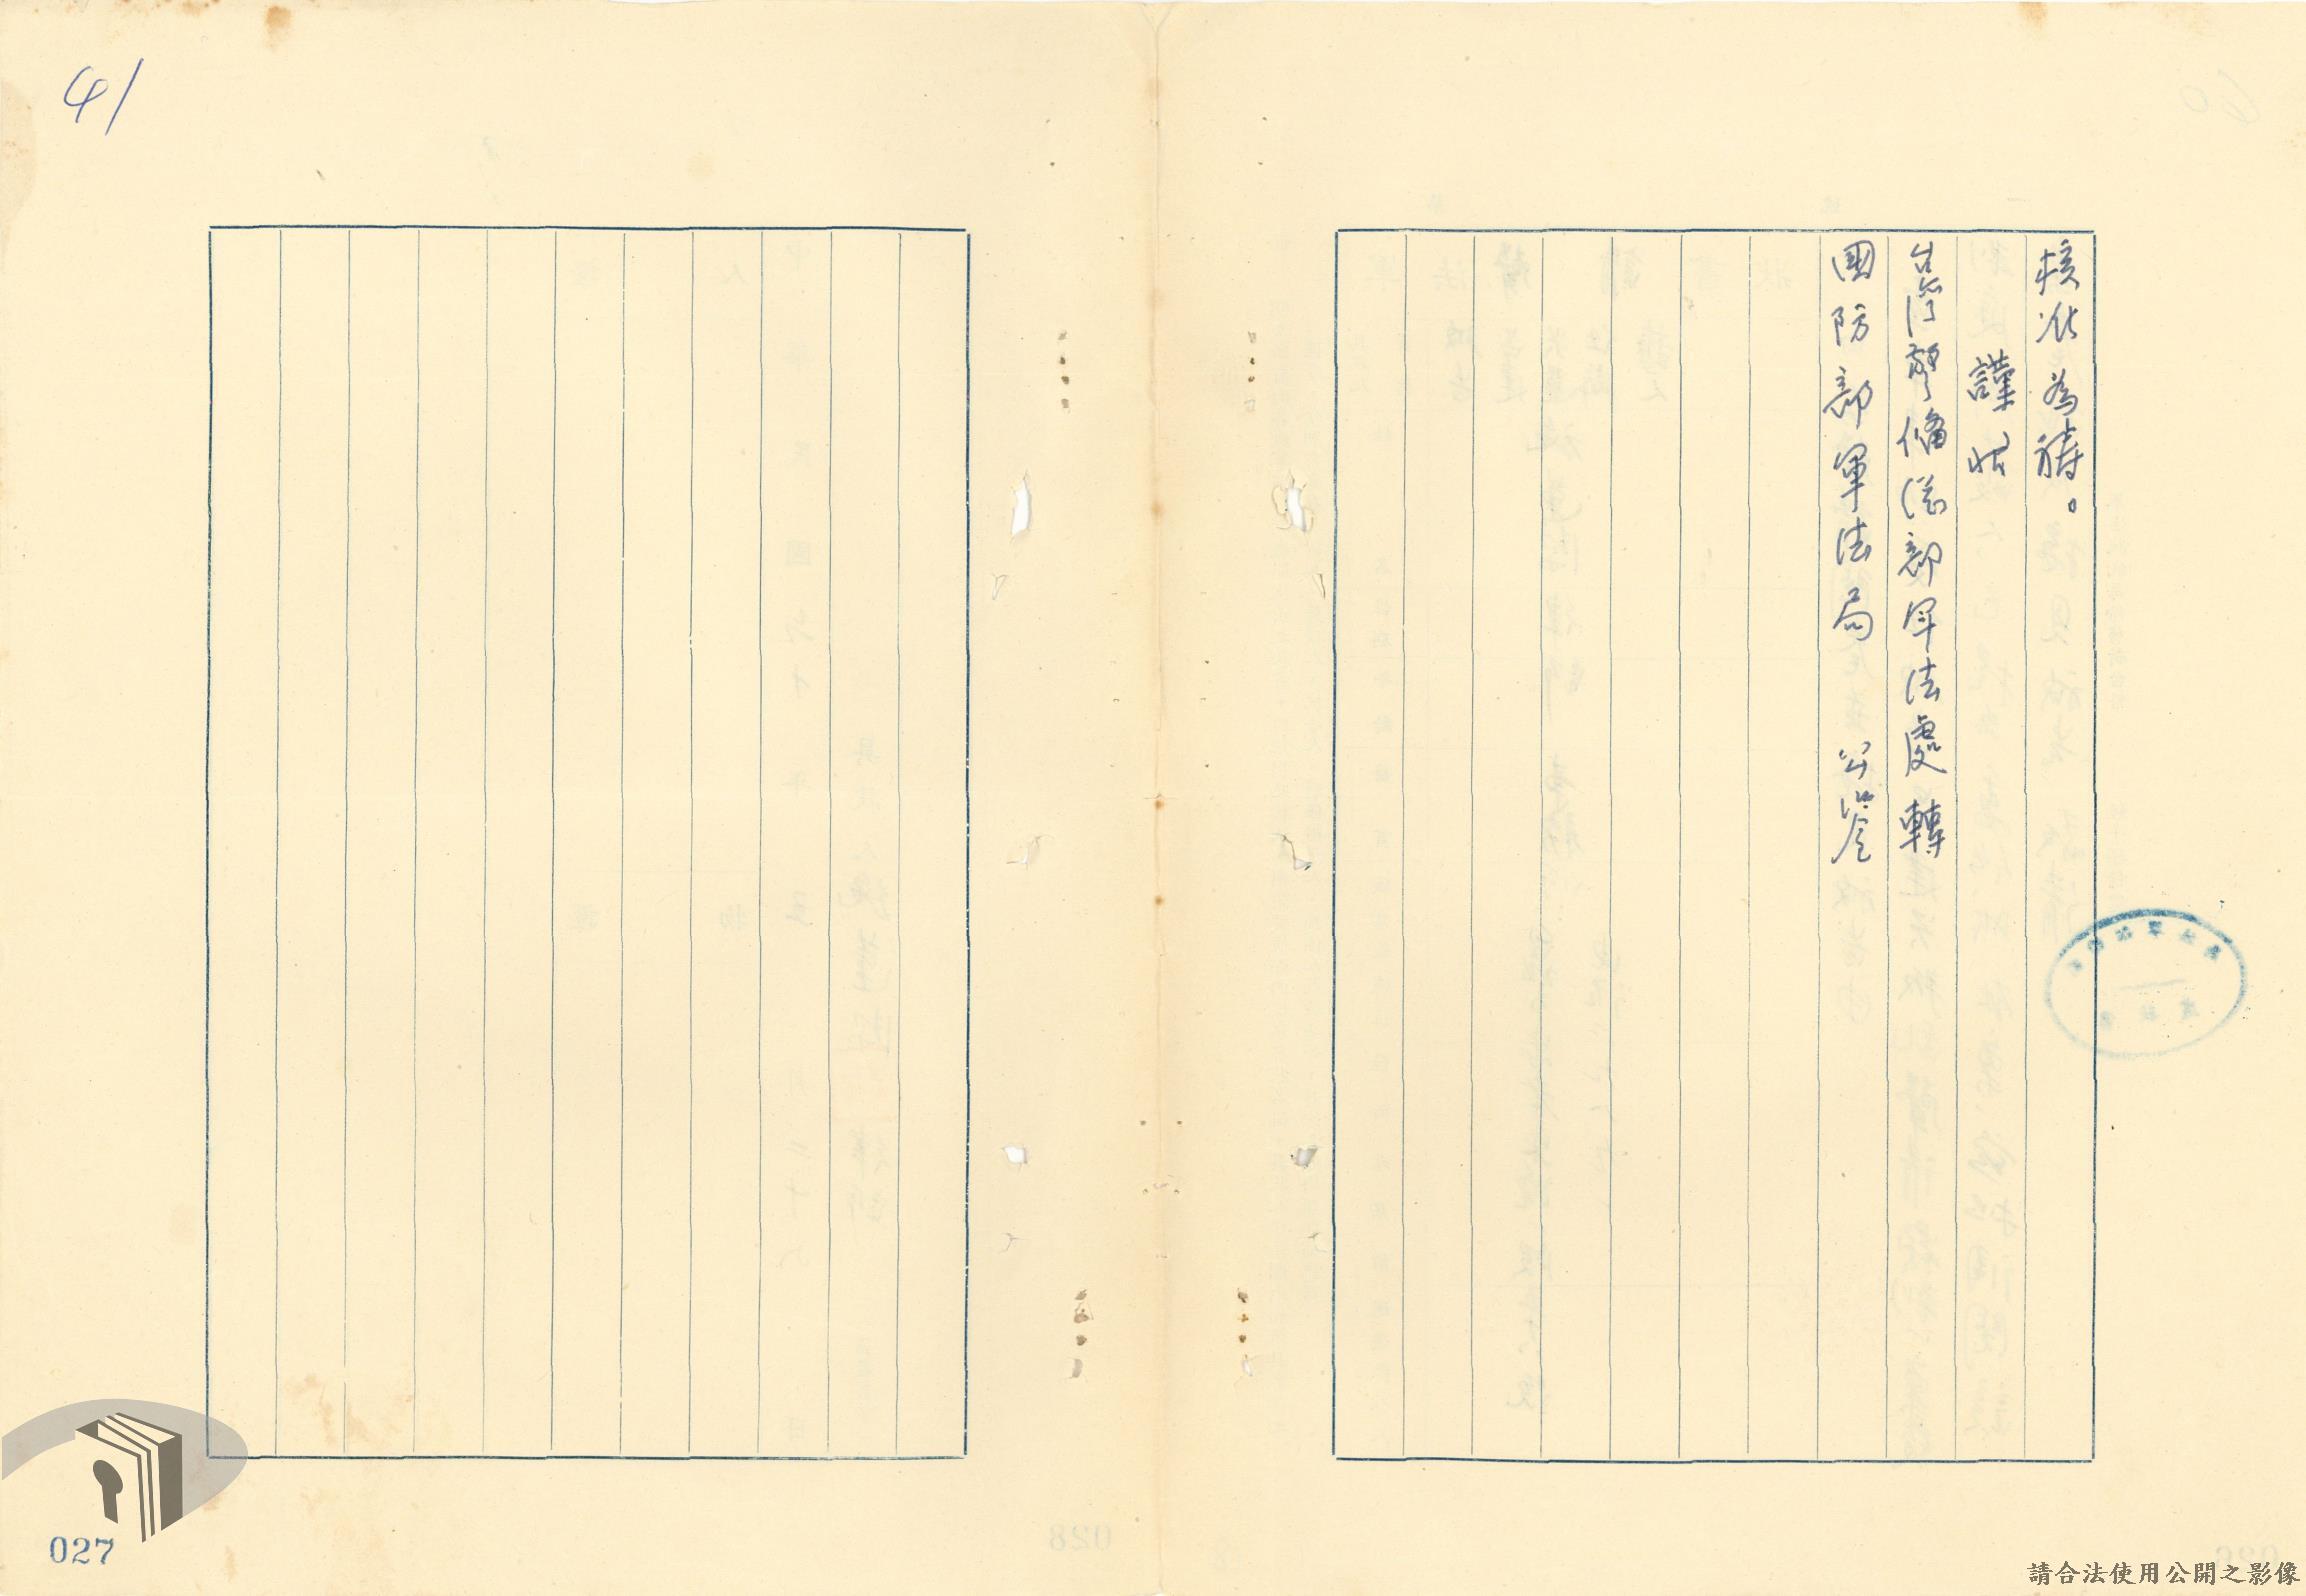 核准為禱。
謹狀
台灣警備總部軍法處 轉
國防部軍法局 公鑒
41
027
請合法使用公開之影像